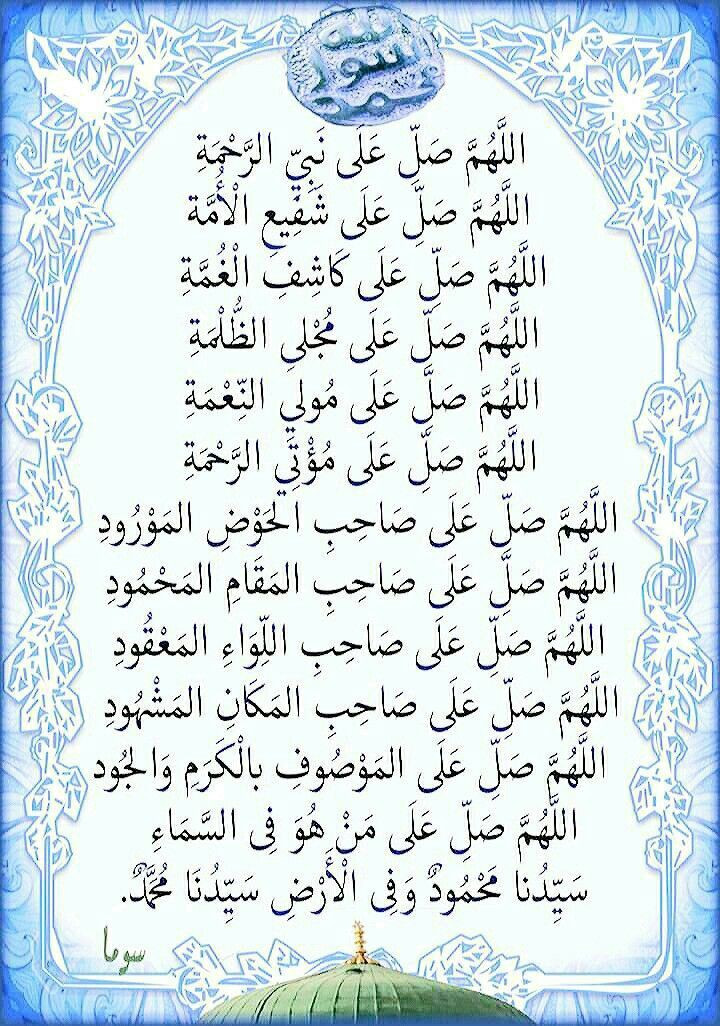 رسول
اللَّهُمَّ صَلِّ عَلَى نَبِيِّ الرَّحْمَةِ
اللَّهُمَّ صَلِّ عَلَى شَفِيعِ الْأُمَّة
اللَّهُمَّ صَلِّ عَلَى كَاشِفِ الْغُمَّةِ
اللَّهُمَّ صَلِّ عَلَى مُجْلِي الظُّلْمَةِ
اللَّهُمَّ صَلِّ عَلَى مُولِي النِّعْمَةِ
اللَّهُمَّ صَلِّ عَلَى مُؤْتِي الرَّحْمَةِ
اللَّهُمَّ صَلِّ عَلَى صَاحِبِ الحَوْضِ المَوْرُودِ
اللَّهُمَّ صَلِّ عَلَى صَاحِبِ المَقَامِ المَحْمُودِ
اللَّهُمَّ صَلِّ عَلَى صَاحِبِ اللِّوَاءِ المَعْقُودِ
اللَّهُمَّ صَلِّ عَلَى صَاحِبِ المَكَانِ المَشْهُودِ
اللَّهُمَّ صَلِّ عَلَى المَوْصُوفِ بالْكَرَمِ وَالجُود
اللَّهُمَّ صَلِّ عَلَى مَنْ هُوَ فِى السَّمَاءِ
سَيِّدُنا مَحْمُودٌ وَفِى الْأَرْضِ سَيِّدُنَا مُحَمَّدٌ.
سوما